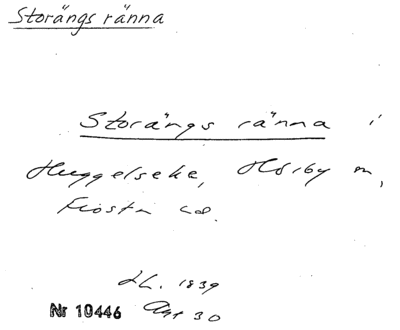 Storängs ränna
Storängs ränna i
Huggelseke, Hörby m,
Frosta
1839
Nr 10446 30